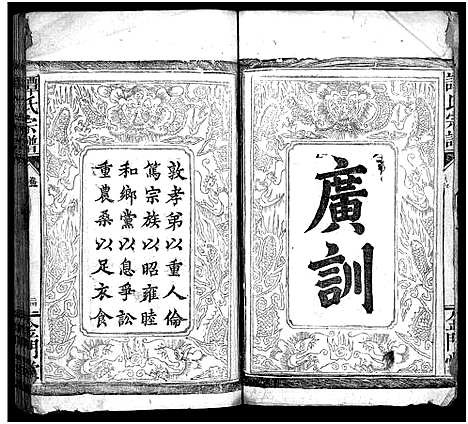 廣訓
敦孝弟以重人倫
篤宗族以昭雍睦
和鄉黨以息爭訟
重農桑以足衣食
譚氏宗譜
金門堂